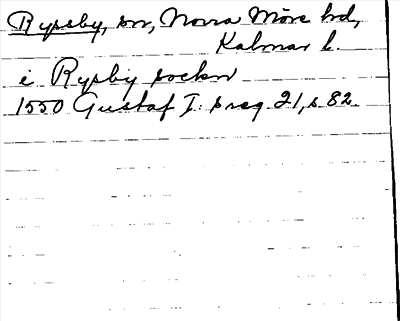 Rypsby, sn, Norra Möre hd,
Kalmar l.
i Rypsby sockn
1550 Gustaf I: s reg. 21, s 82.